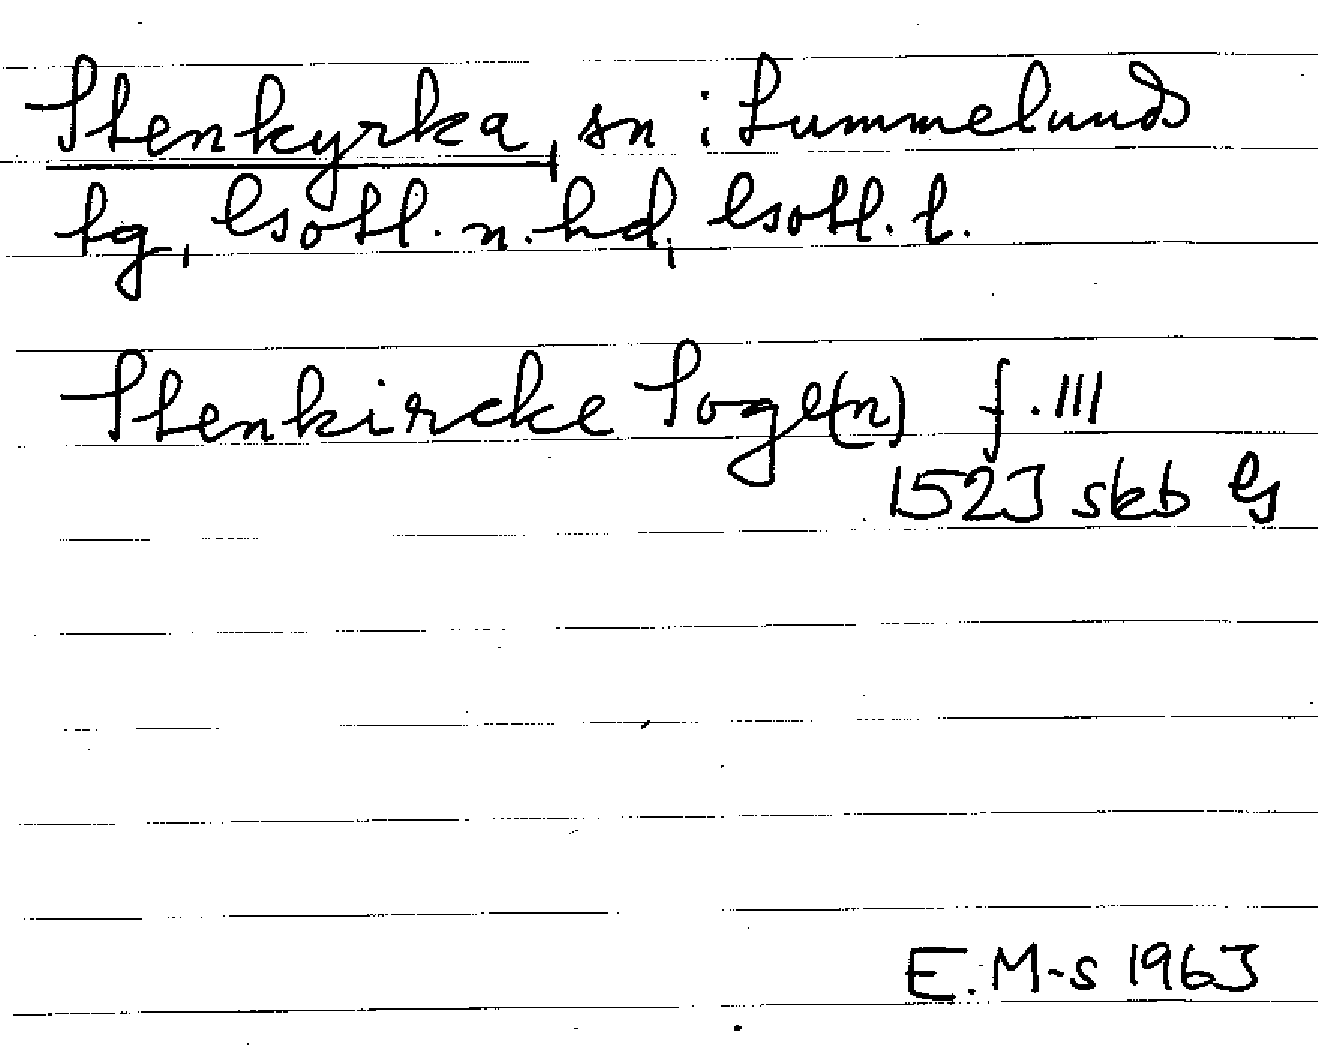 Stenkyrka, sn i Lummelunds
tg, Gotl. n. hd, Gotl. l.
Stenkircke Soge(n) f. 111
1523 skb G
E. M-s 1963